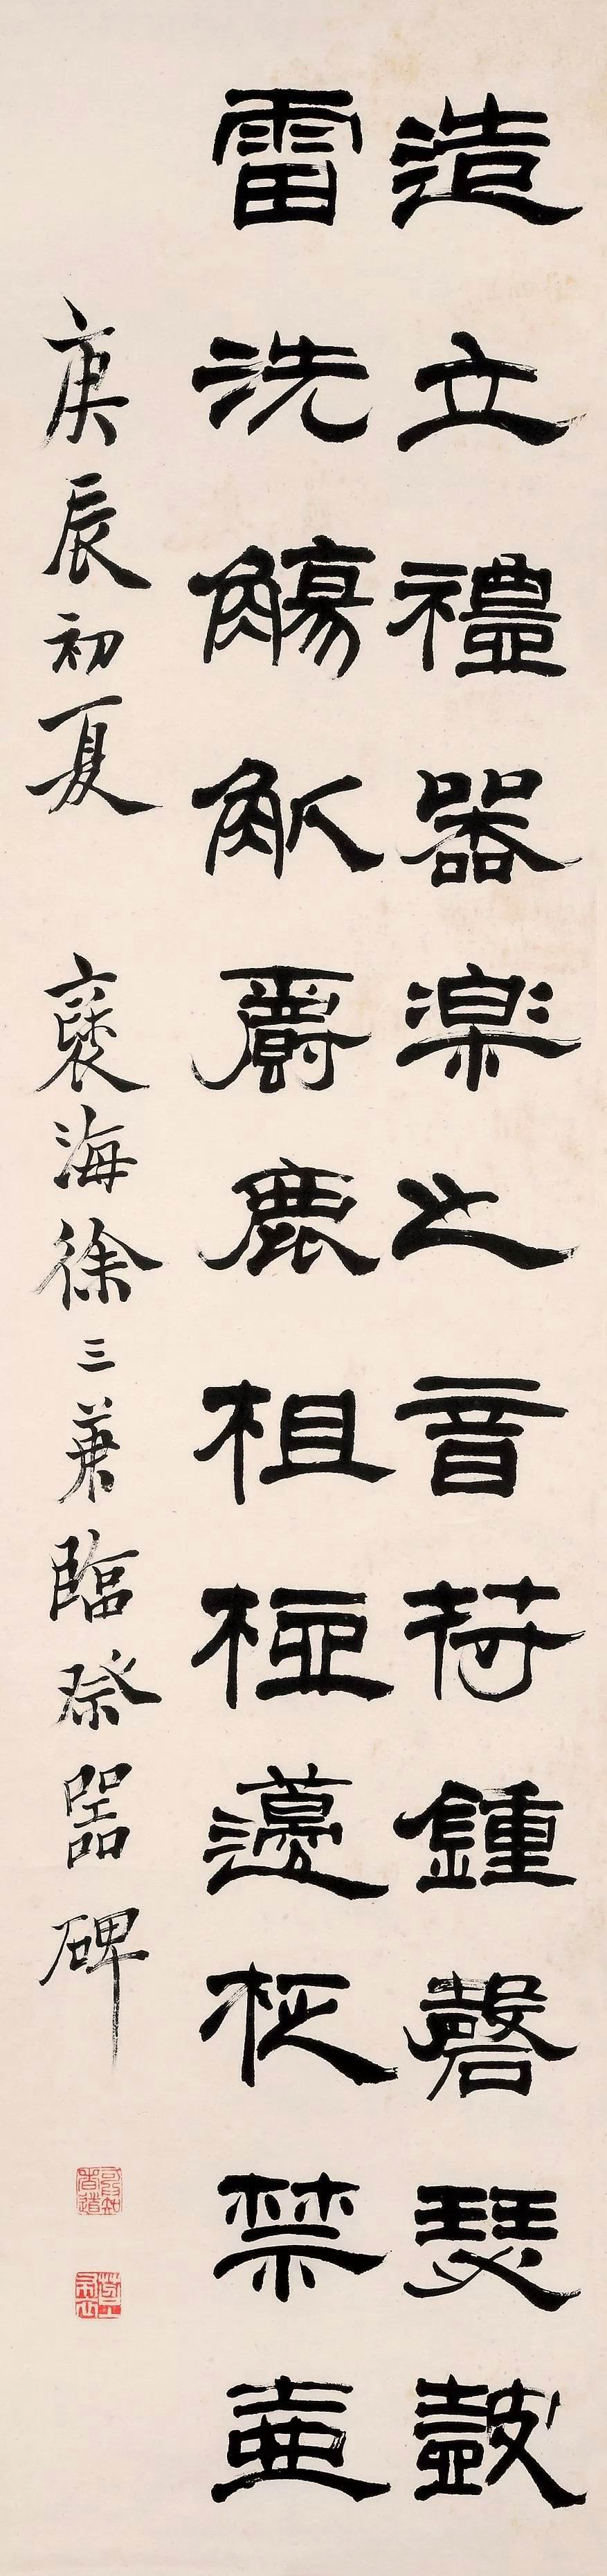 造立禮器樂之音符鍾磬瑟鼓
雷洗觴觚爵鹿柤梪籩柉禁壺
庚辰初夏 褎海徐三庚臨祭器碑